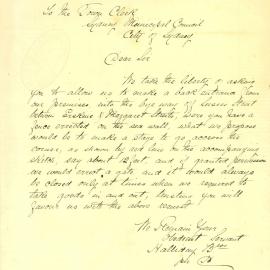 To the Town Clerk
Sydney Municipal Council
City of Sydney
Dear Sir
We take the liberty of asking
you to allow us to make a back entrance from
our premises into the bye way of Sussex Street
between Erskine & Margaret Streets, were you have a
fence erected on the sea wall, what we propose
would be to make a way to go across the
corner, as shown by red line on the accompanying
sketch, say about 12 feet, and if granted permission
we would erect a gate, and it would always
be closed only at times when we required to
take goods in and out, trusting you will
favour us with the above request
We Remain Yours
Obedient Servant
Halliday Bros
per